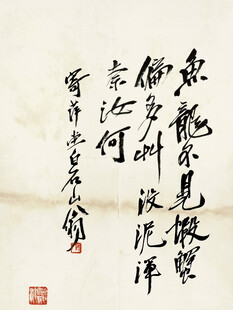 魚龍不見蝦蟹
偏多艸沒泥渾
奈汝何
寄萍堂白石山翁